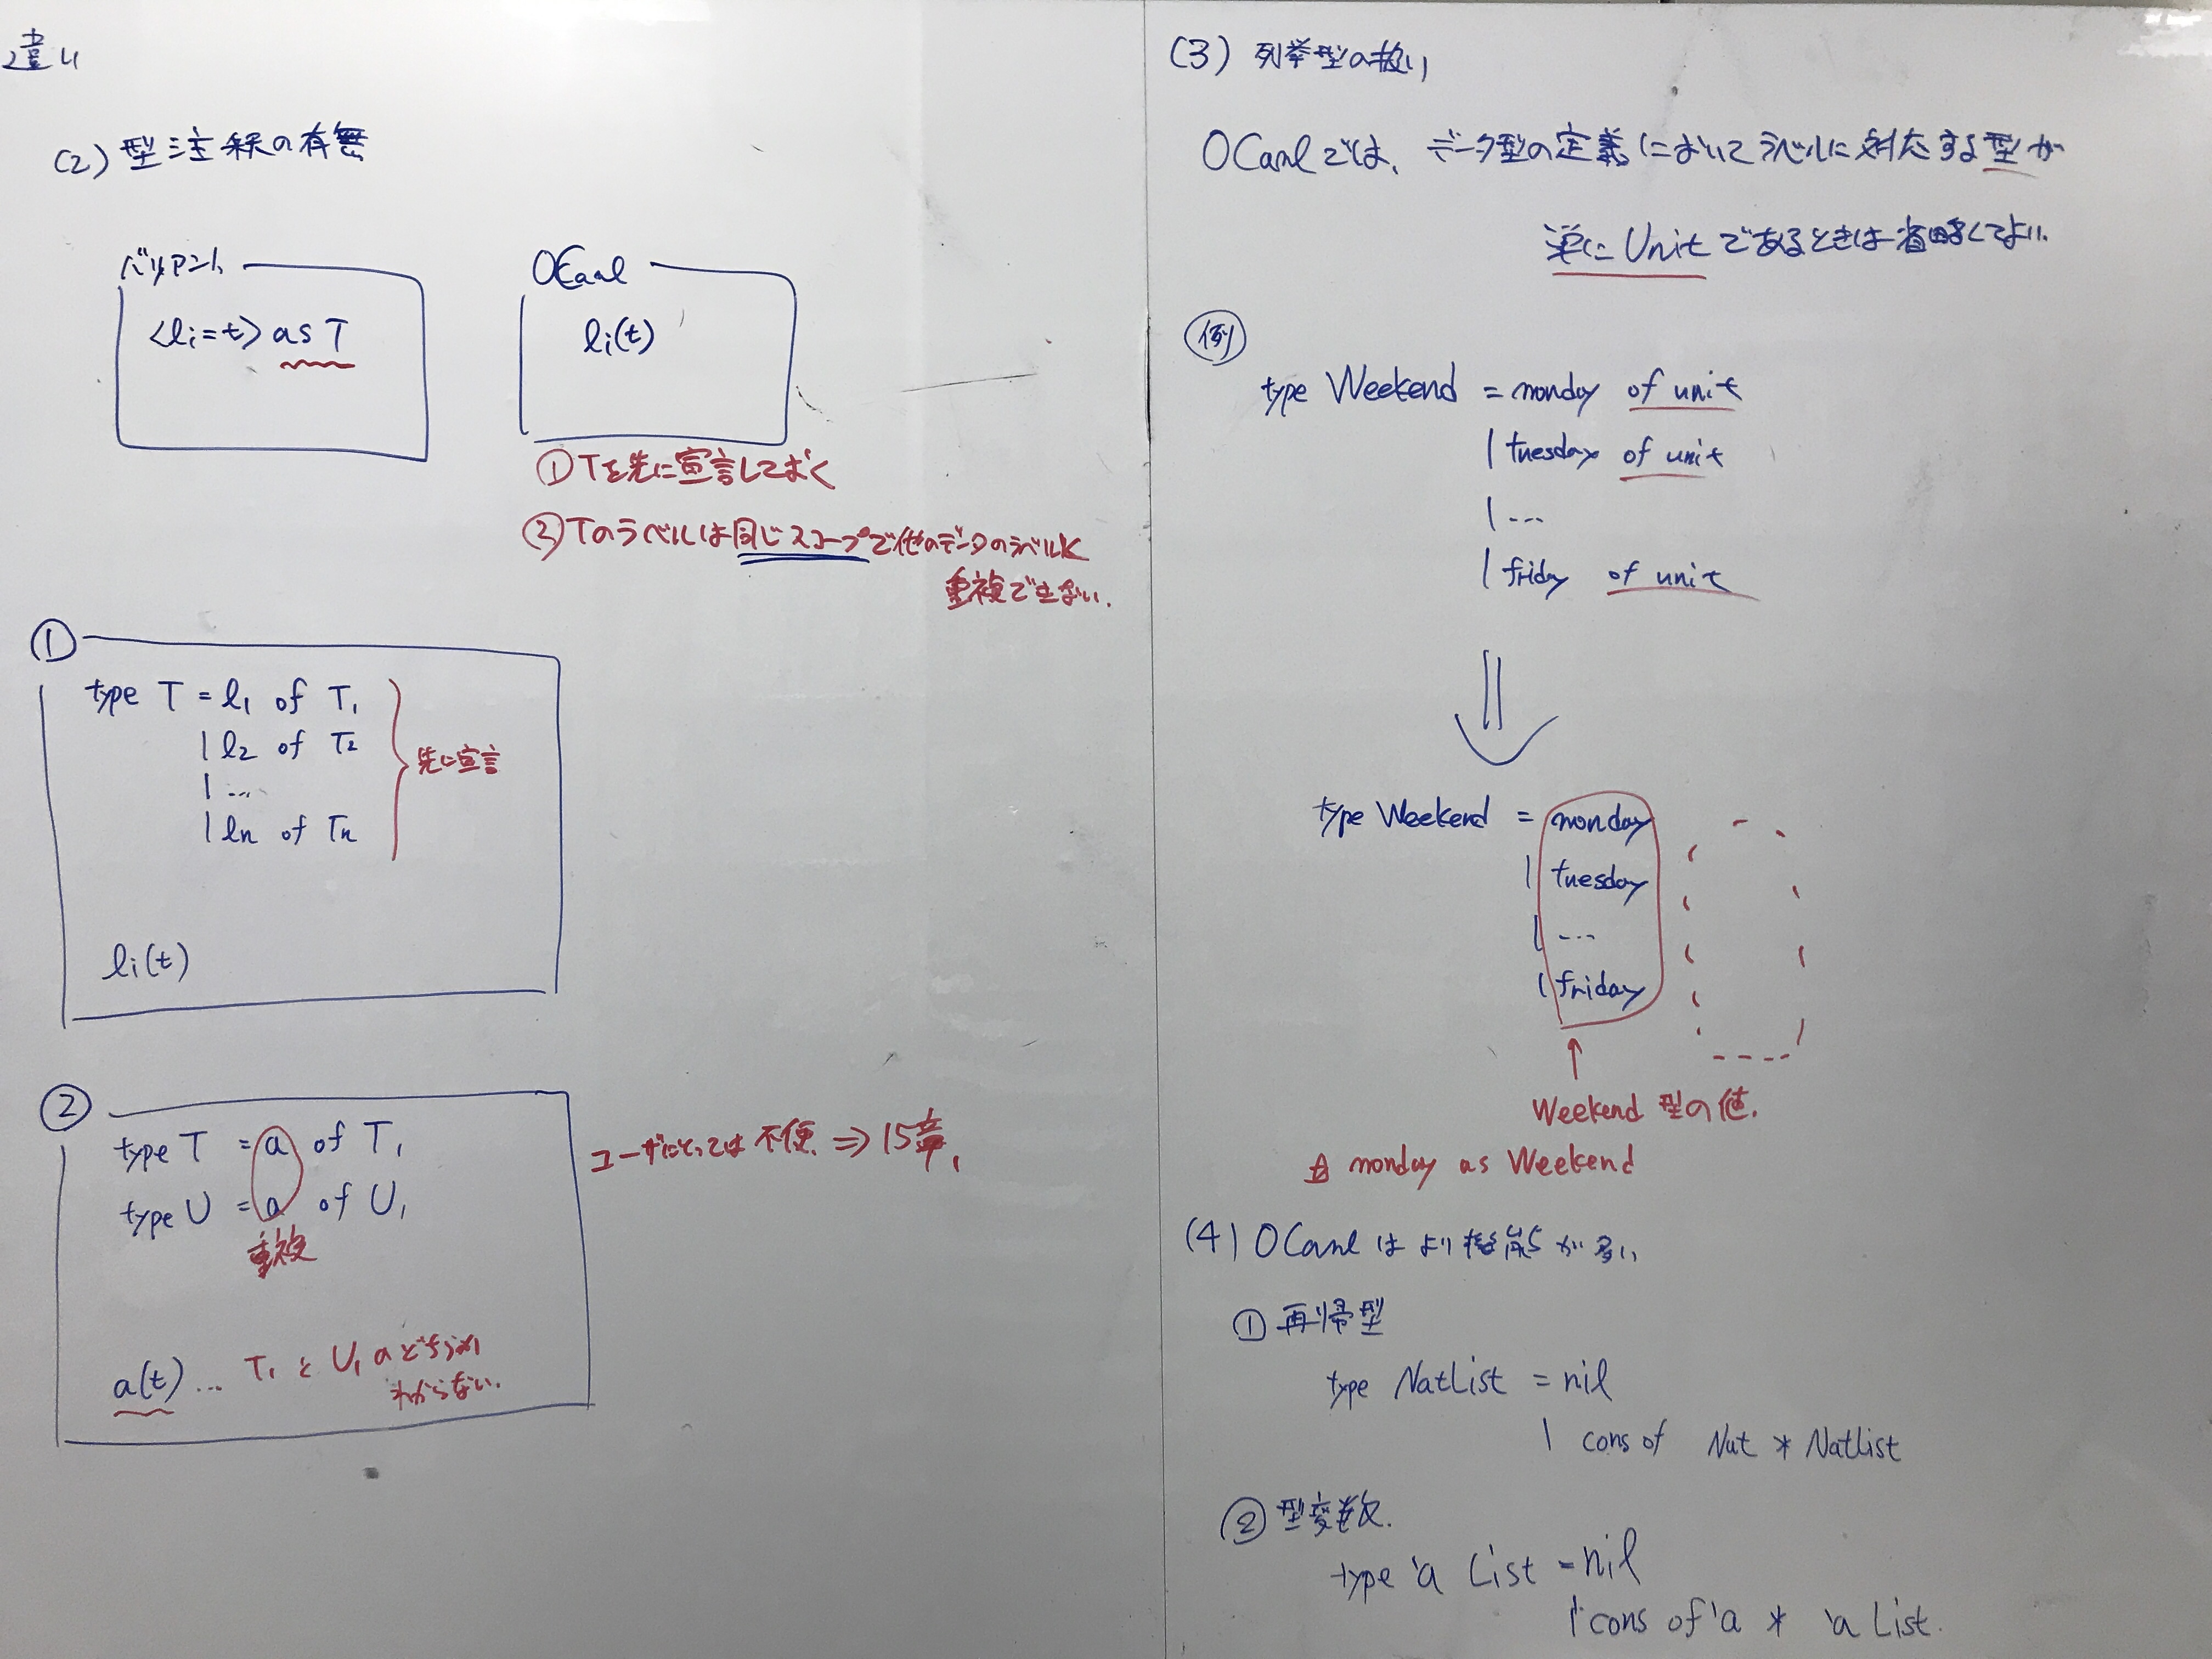 違い
(2) 型注釈の有無
バリアント
<li=t> as T
OCaml
li(t)
① Tを先に宣言しておく
② Tのラベルは同じスコープで他のデータのラベルと
重複できない.
①
type T = l1 of T1
| l2 of T2
| ...
| ln of Tn
先に宣言
li(t)
②
type T = a of T1
type U = a of U1
重複
a(t) ... T1 と U1 のどちらか
わからない.
ユーザにとっては不便. ⇒ 15章.
(3) 列挙型の扱い
OCamlでは、データ型の定義においてラベルに対応する型が
単に Unit であるときは省略してよい.
例
type Weekend = monday of unit
| tuesday of unit
| ...
| friday of unit
type Weekend = monday
| tuesday
| ...
| friday
↑
Weekend 型の値.
monday as Weekend
(4) OCamlはより機能が多い
① 再帰型
type NatList = nil
| cons of Nat * NatList
② 型変数.
type 'a List = nil
| cons of 'a * 'a List.